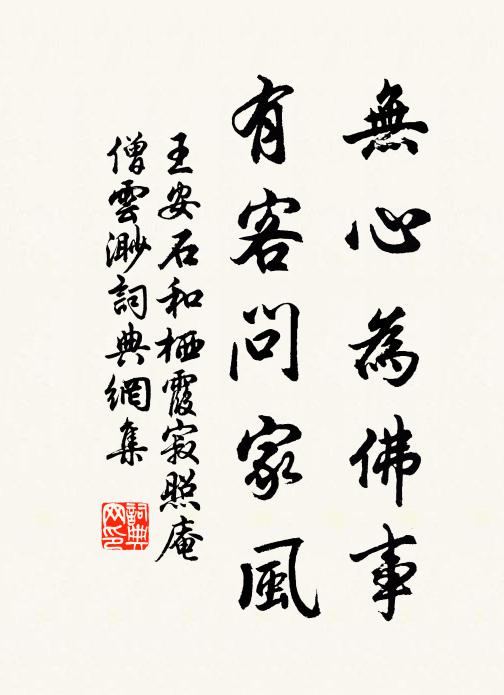 無心為佛事
有客問家風
王安石和栖霞寂照庵
僧雲渺詞典網集
詞典网印